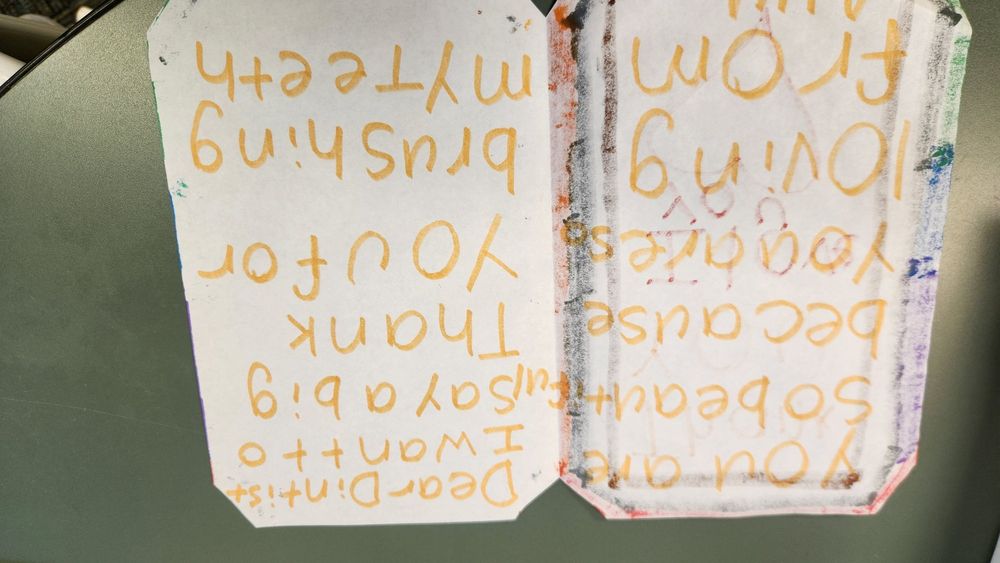 You are
So beautiful
because
You are so
loving
from
Dear Dintist
I want to
say a big
Thank
You for
brushing
my Teeth